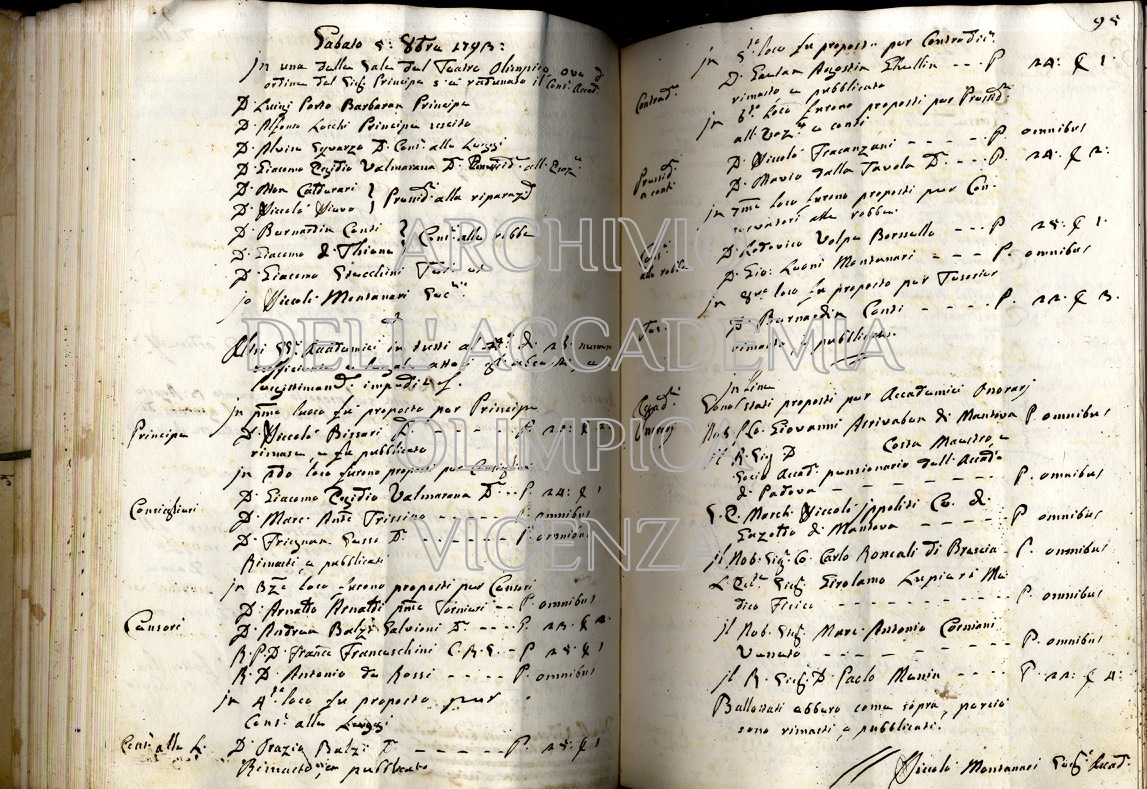 Sabato 5: 8bre 1793:
In una delle Sale del Teatro Olimpico, ove d'
ordine del Sig. Principe s'è radunato il Cons. Accad.
D. Luigi Porto Barbaran Principe
D. Alfonso Loschi Principe uscito
D. Alvise Squarzo D. Cons. alle Leggi
D. Giacomo Egidio Valmarana D.
D. Catturari
D. Niccolò } Presid. alla riparaz.
D. Bernardin Conti
D. Giacomo di Thiene } Cons. alle robbe
D. Giacomo Stecchini
Io Niccolò Montanari Seg.
Altri SS. Accademici in tutti al n.° di 25 numero
sufficiente e legale atteso gl'absenti, e
legittimamente impediti.
In pmo luoco fu proposto per Principe
Principe
D. Niccolò Bissari D. - - - P.
rimase, e fu pubblicato
In 2do loco furono proposti per Consiglieri
D. Giacomo Egidio Valmarana D. - - P. 24: C. 1
Consiglieri
D. Marc' Anto Trissino - - - - P. omnibus
D. Trissino D. - - - - P. omnibus
Rimasti e pubblicati
In 3zo loco furono proposti per Censori
D. Arnaldo Arnaldi pmo Tornieri - - P. omnibus
Censori
D. Andrea Balzi Salvioni D. - - - P. 23: C. 2
R. P. D. Franco Franceschini C. R. S. - - P. 25: C. 1
R. D. Antonio de Rossi - - - P. omnibus
In 4to loco fu proposto per
Cons. alle Leggi
Cons. alle L.
D. Orazio Balzi D. - - - - - P. 25: C. 1
Rimasto, e pubblicato
95
In 5to loco fu proposto per Contradic.
Contrad.
D. Gaetan Agostin - - - P. 24: C. 1.
rimasto e pubblicato
In 6to loco furono proposti per Presid.
e conti
Presid.
a conti
D. Niccolò Fracanzani - - - - P. omnibus
D. Mario dalla Tavola D. - - P. 24: C. 2:
In 7mo loco furono proposti per Con-
servatori alle robbe
Cons.
alle robbe
D. Lodovico Volpe Borsello - - - P. 25: C. 1
D. Gio: Luoni Montanari - - - P. omnibus
In 8vo loco fu proposto per Tesorier
Tes.
D. Bernardin Conti - - - - P. 22: C. 3.
rimasto, e pubblicato.
In fine
Accad.
Onorarj
Sono stati proposti per Accademici Onorarj
Nob. Sig. Co. Giovanni Arrivaben di Mantova P. omnibus
Il R. Sig. D. Costa Maestro e
Socio Accad. pensionario dell'Accad.
di Padova - - - - - - P. omnibus
S. E. March. Niccolò Ippoliti Co. di
Gazoldo di Mantova - - - - - P. omnibus
Il Nob. Sig. Co. Carlo Roncali di Brescia - P. omnibus
L'Ecc. Sig. Girolamo Lupieri Me-
dico Fisico - - - - - - P. omnibus
Il Nob. Sig. Marc' Antonio Corniani
Veneto - - - - - P. omnibus
Il R. Sig. D. Paolo Manin - - - - P. 22: C. 4:
Ballottati ebbero come sopra, perciò
sono rimasti, e pubblicati.
Niccolò Montanari Seg. Accad.
ARCHIVIO
DELL'ACCADEMIA
OLIMPICA
VICENZA